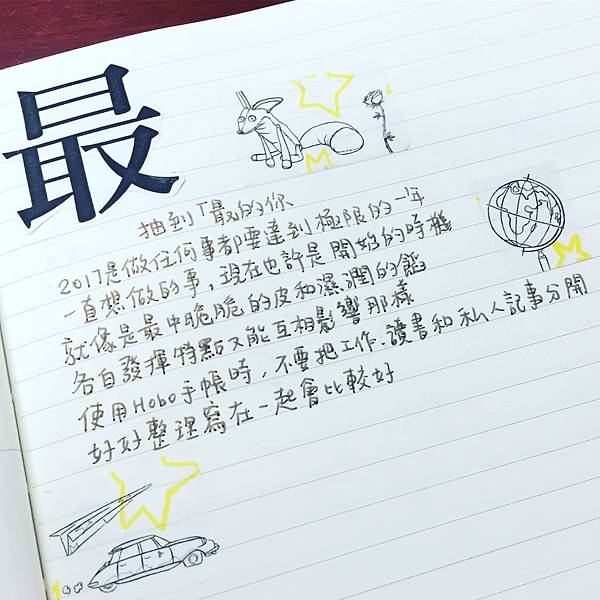 最
抽到「最」的你
2017是做任何事都要達到極限的一年
一直想做的事，現在也許是開始的時機
就像是最中脆脆的皮和濕潤的餡
各自發揮特點又能互相影響那樣
使用Hobo手帳時，不要把工作、讀書和私人記事分開
好好整理寫在一起會比較好